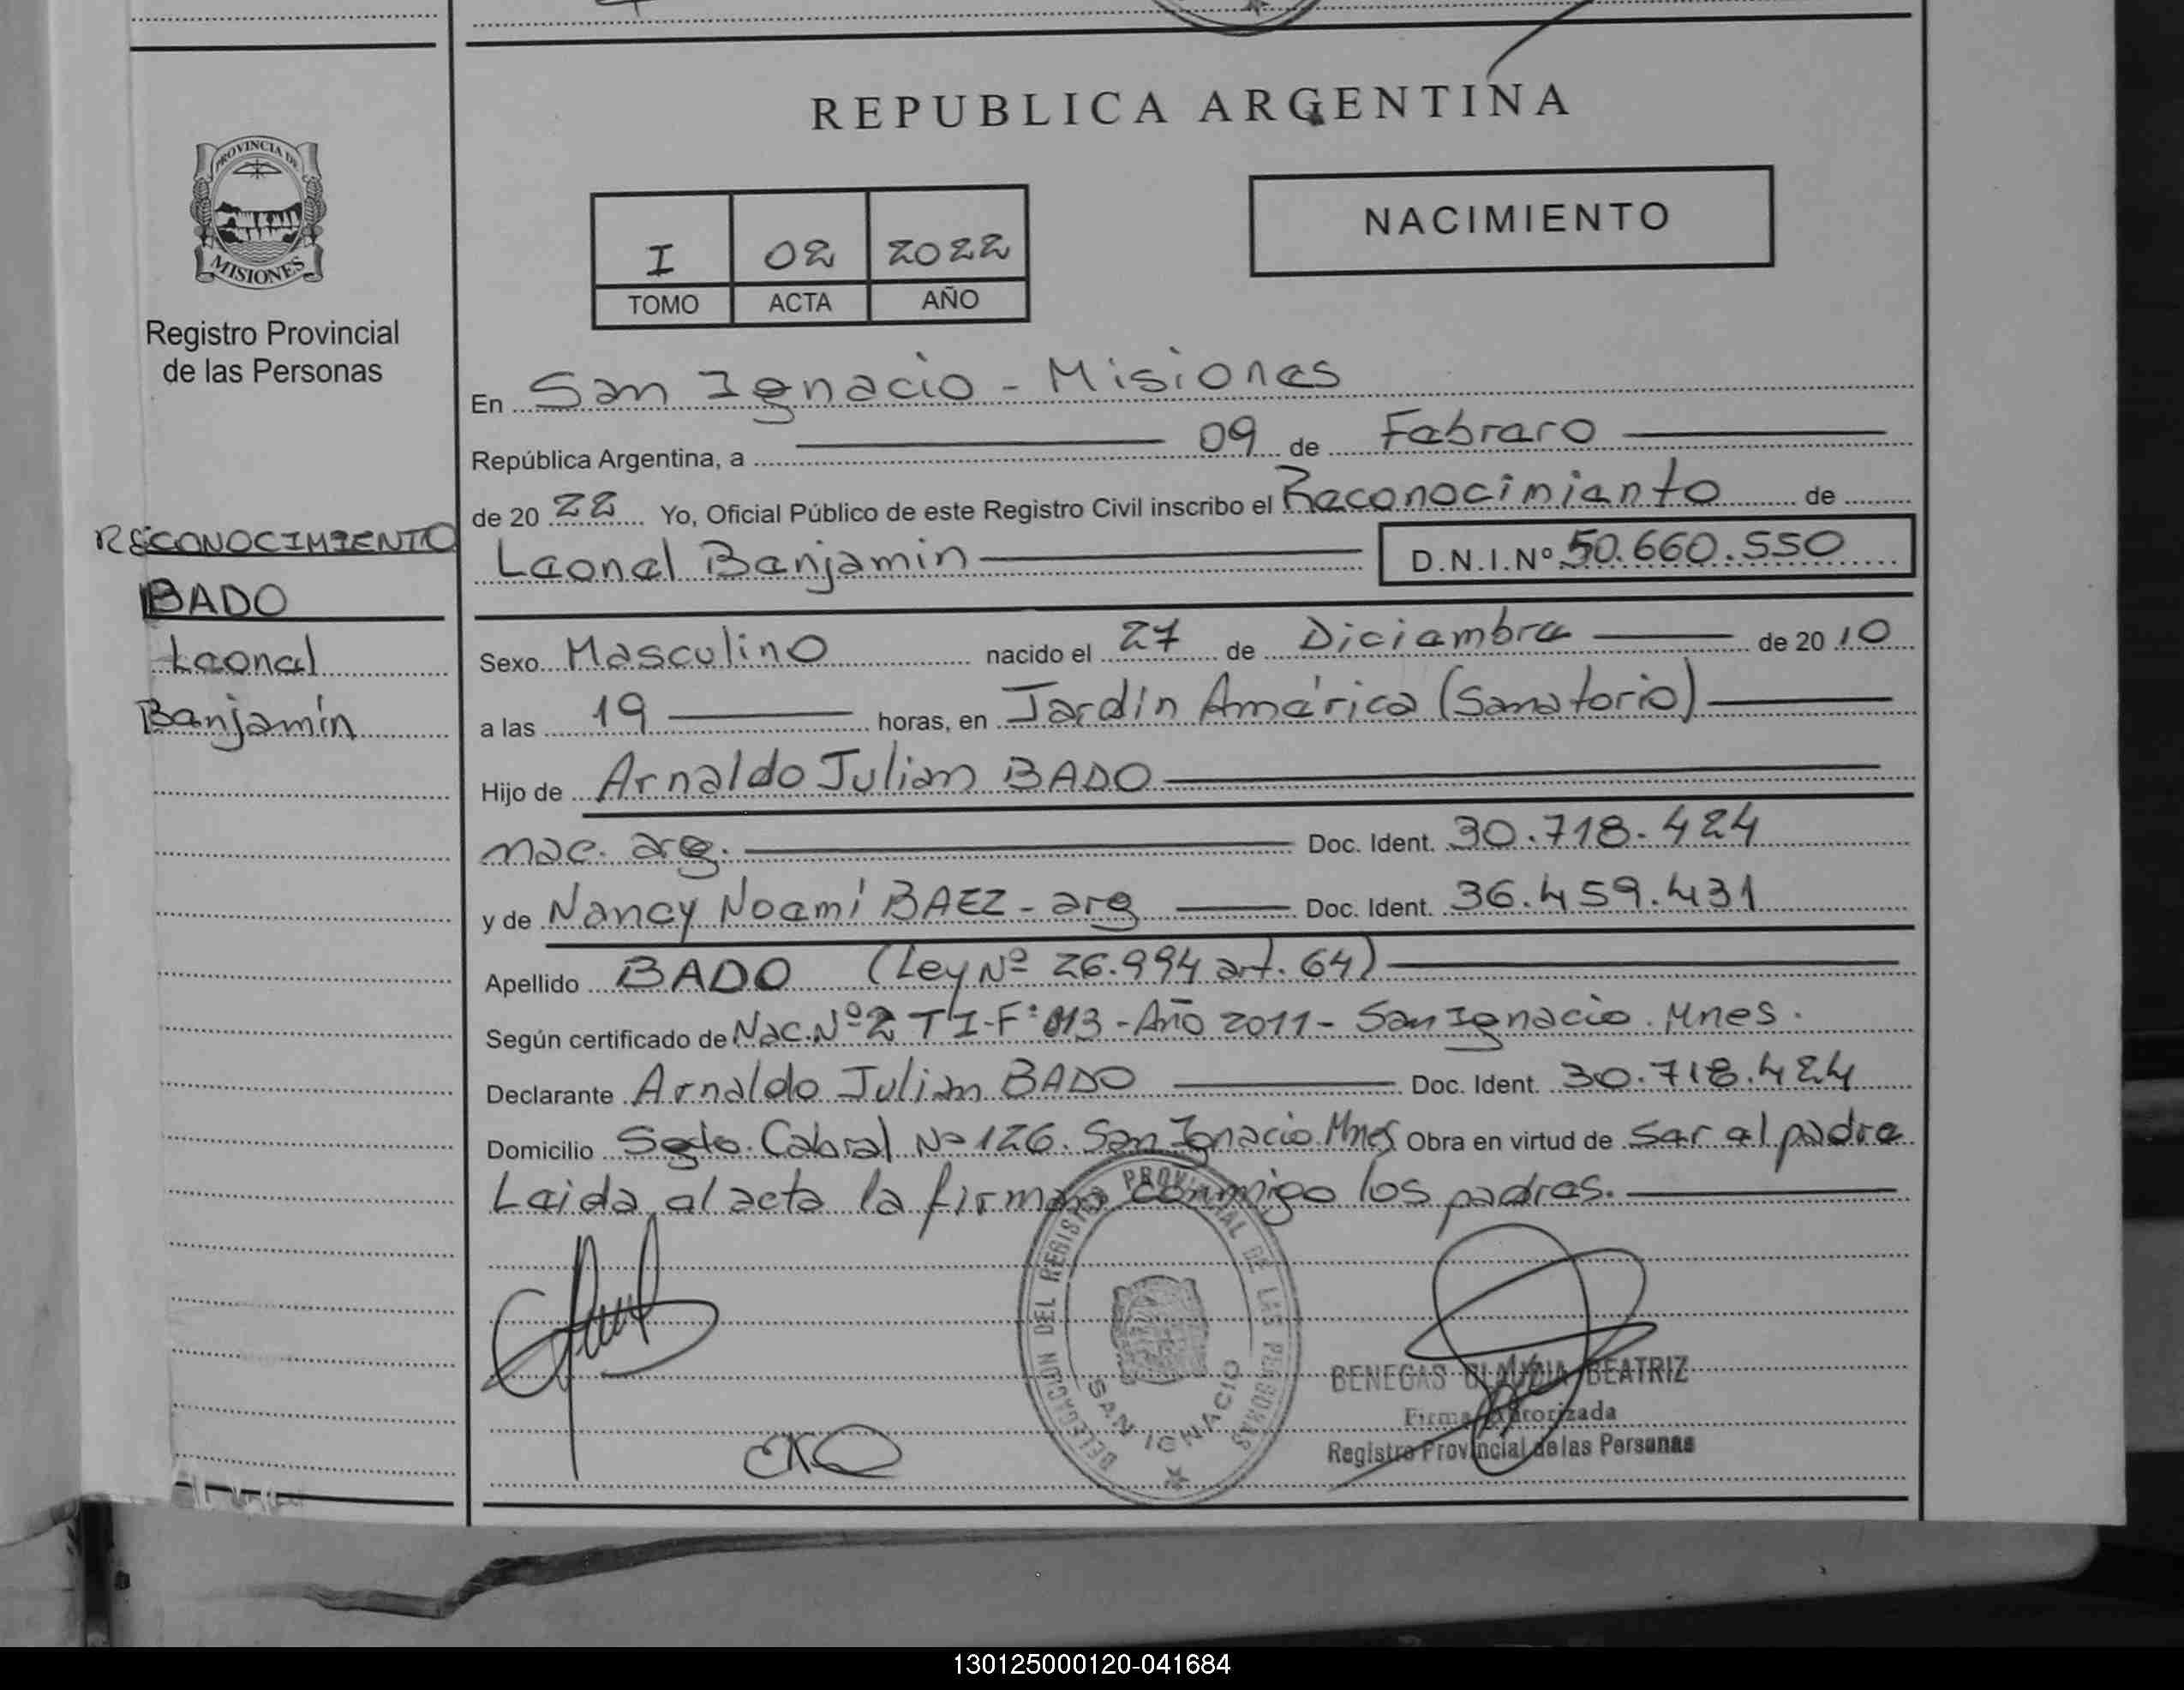 REPUBLICA ARGENTINA
PROVINCIA DE
MISIONES
Registro Provincial
de las Personas
NACIMIENTO
I 02 2022
TOMO ACTA AÑO
En San Ignacio - Misiones
República Argentina, a 09 de Febrero
de 20 22 Yo, Oficial Público de este Registro Civil inscribo el Reconocimiento de
Leonel Benjamin D.N.I.Nº 50.660.550
RECONOCIMIENTO
BADO
Leonel
Benjamín
Sexo Masculino nacido el 27 de Diciembre de 20 10
a las 19 horas, en Jardín América (Sanatorio)
Hijo de Arnaldo Julian BADO
nac. arg. Doc. Ident. 30.718.424
y de Nancy Noemí BAEZ - arg Doc. Ident. 36.459.431
Apellido BADO (Ley Nº 26.994 art. 64)
Según certificado de Nac. Nº 2 T I - Fº 013 - Año 2011 - San Ignacio. Mnes.
Declarante Arnaldo Julian BADO Doc. Ident. 30.718.424
Domicilio Sgto. Cabral Nº 126. San Ignacio Mnes Obra en virtud de ser el padre
Leida el acta la firman conmigo los padres.
DELEGACION DEL REGISTRO PROVINCIAL DE LAS PERSONAS
SAN IGNACIO
BENEGAS CLAUDIA BEATRIZ
Firma Autorizada
Registro Provincial de las Personas
130125000120-041684